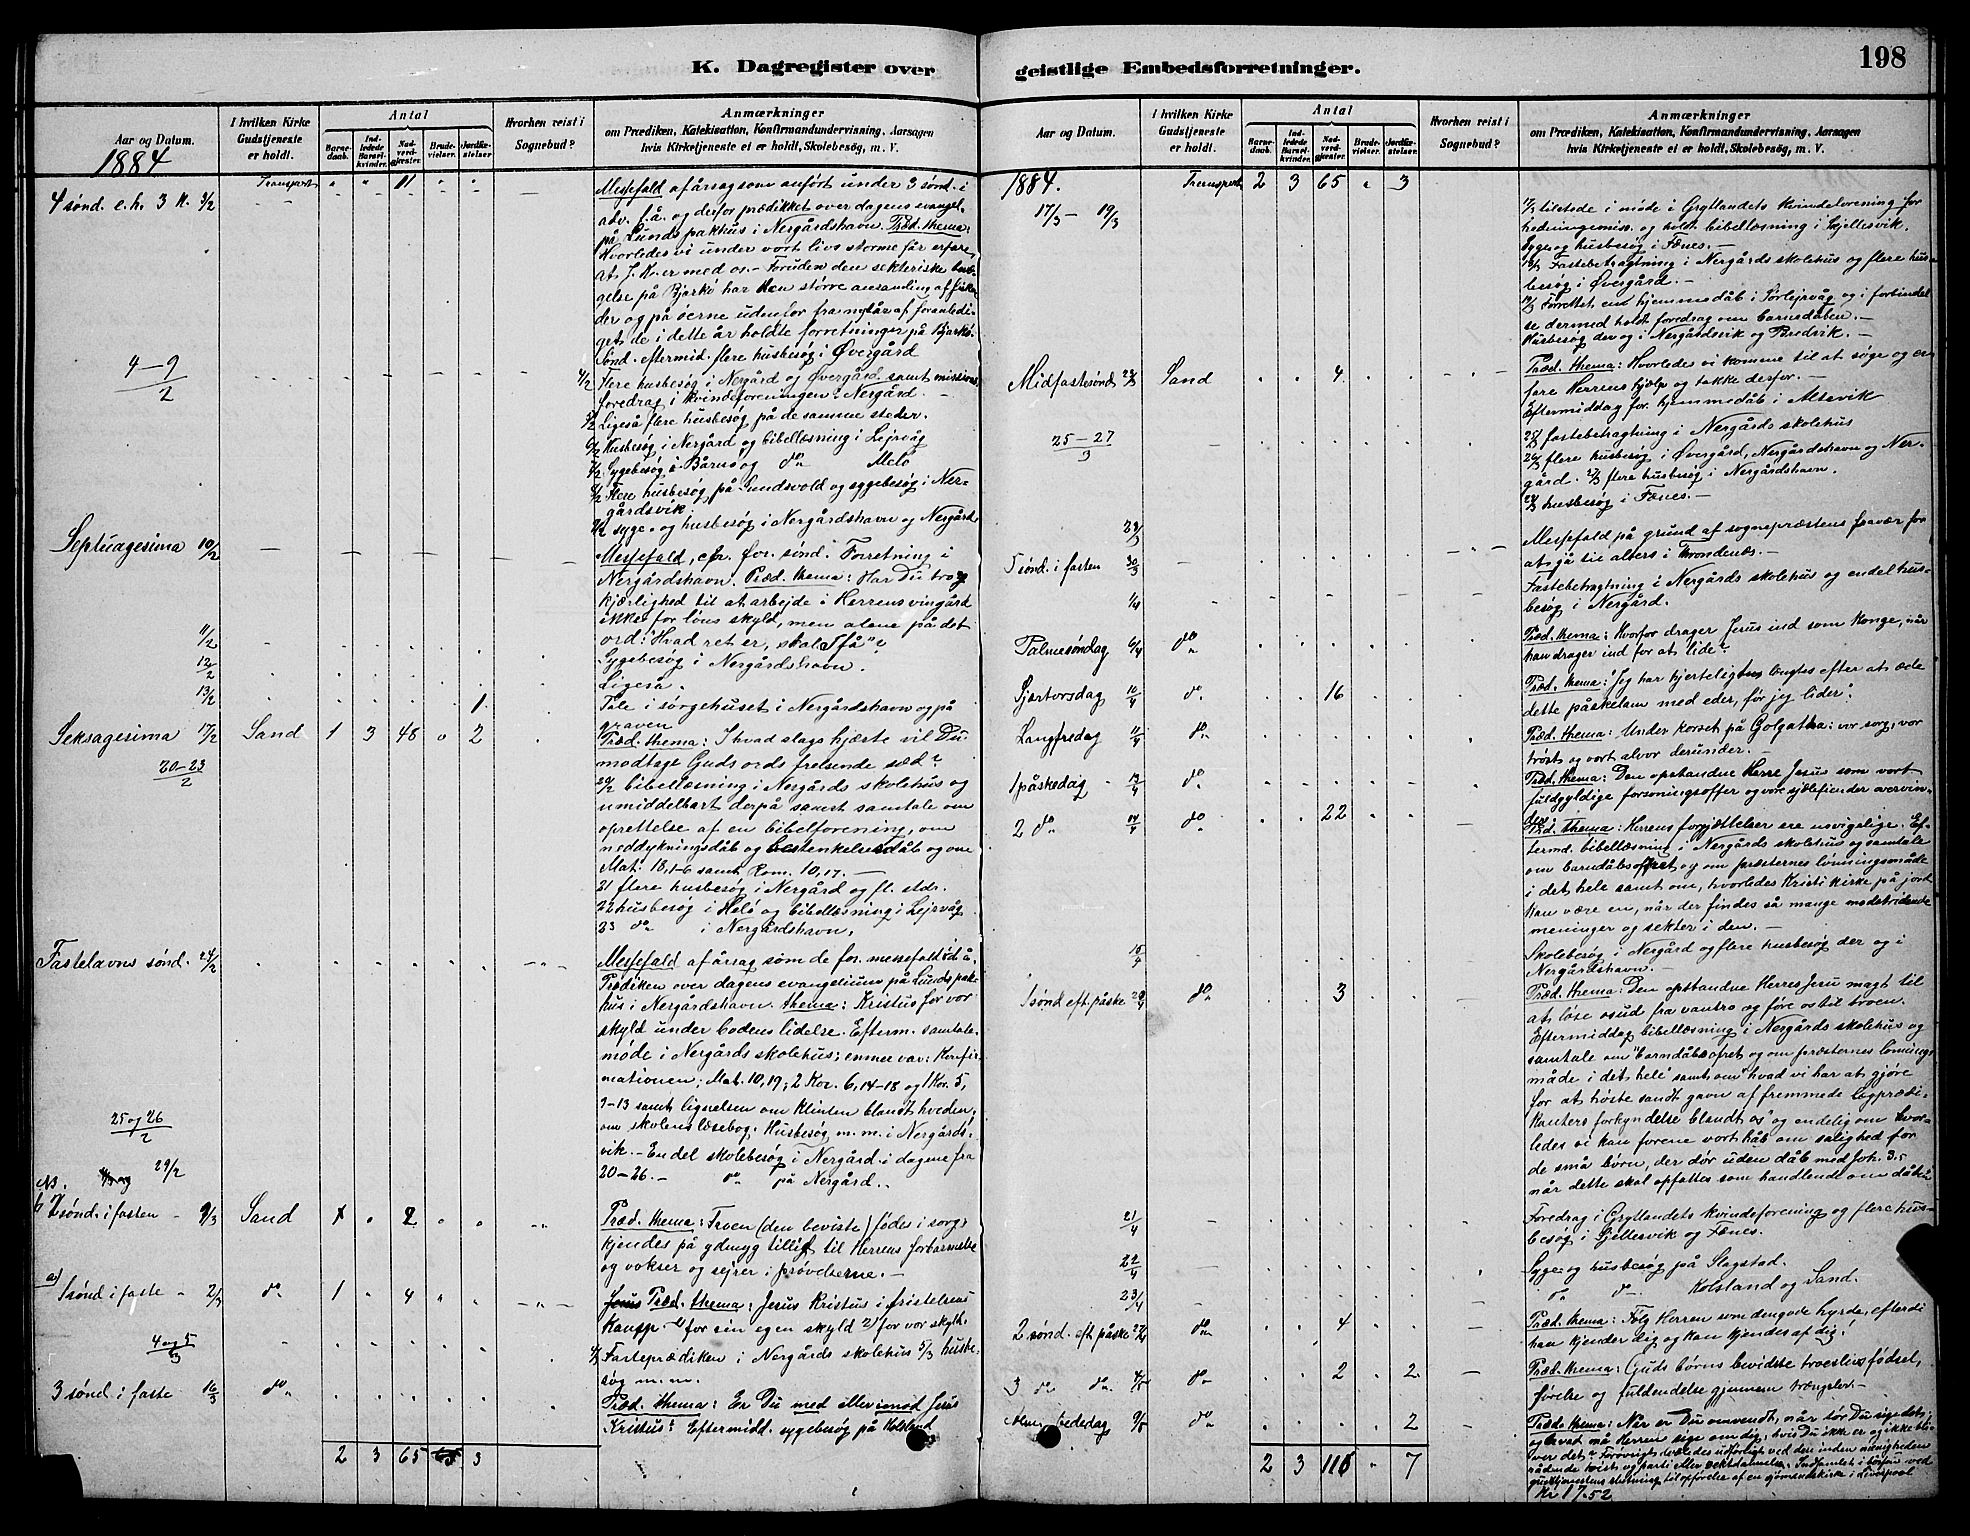 198
K. Dagregister over
geistlige Embedsforretninger.
Aar og Datum.
1884
I hvilken Kirke Gudstjeneste er holdt.
Antal
Barnedaab.
Indledede Barselkvinder.
Nadverdgjester.
Brudevielser.
Jordfæstelser.
Hvorhen reist i Sognebud?
Anmærkninger
om Prædiken, Katekisation, Konfirmandundervisning, Aarsagen
hvis Kirketjeneste ei er holdt, Skolebesøg, m. V.
Transport " " 11 " "
4 sønd. e. h. 3 K. 3/2
Messefald af årsag som anført under 3 sønd. i
adv. f. å. og derfor prædikket over dagens evangel.
på Lunds pakhus i Nergårdshavn. Præd. thema:
Hvorledes vi under vort livs storme får erfare
at J. K. er med os. – Foruden den sekteriske bevæ-
gelse på Bjarkø har den større ansamling af fiske
der og på øerne udenfor fra nytår af foranledi-
get de i dette år holdte forretninger på Bjarkø.
Sønd. eftermid. flere husbesøg i Øvergård
4–9/2
4/2 flere husbesøg i Nergård og Øvergård samt missions
foredrag i kvindeforeningen i Nergård. –
5/2 Ligeså flere husbesøg på de samme steder.
6/2 Husbesøg i Nergård og bibellæsning i Lejrvåg
7/2 Sygebesøg i Bårnes og do Melø
8/2 Flere husbesøg på Sundsvold og sygebesøg i Ner-
gårdsvik
9/2 syge- og husbesøg i Nergårdshavn og Nergård
Septuagesima 10/2
Messefald, cfr. for. sønd. Forretning i
Nergårdshavn. Præd. thema: Har Du tro og
kjærlighed til at arbejde i Herrens vingård
ikke for løns skyld, men alene på det
ord: "Hvad ret er, skal I få"?
11/2 Sygebesøg i Nergårdshavn.
12/2 Ligeså.
13/2 1 Tale i sørgehuset i Nergårdshavn og på
graven
Seksagesima 17/2 Sand 1 3 48 " 2
Præd. thema: I hvad slags hjærte vil Du
modtage Guds ords frelsende sæd?
20–23/2
20/2 bibellæsning i Nergårds skolehus og
umiddelbart derpå samt samtale om
oprettelse af en bibelforening, om
neddykningsdåb og bestenkelsesdåb og om
Mat. 18,1-6 samt Rom. 10,17. –
21 flere husbesøg i Nergård og fl. stdr.
22 husbesøg i Melø og bibellæsning i Lejrvåg
23 do i Nergårdshavn.
Fastelavns sønd. 24/2
Messefald af årsag som de for. messefald i d. å.
Prædiken over dagens evangelium på Lunds pak-
hus i Nergårdshavn. thema: Kristus for vor
skyld under bodens lidelse. Efterm. samtale-
møde i Nergårds skolehus; emner var: Konfir-
mationen; Mat. 10,19; 2 Kor. 6,14-18 og 1 Kor. 5,
9-13 samt lignelsen om klinten blandt hveden,
om skolens læsebog. Husbesøg m. m. i Nergårds-
vik. – En del skolebesøg i Nergård i dagene fra
25 og 26/2
20–26. – do på Nergård. –
29/2
NB.
b) 2 sønd. i fasten – 9/3 Sand 1 " 2
Præd. thema: Troen (den beviste) fødes i sorg
kjendes på ydmyg tillid til Herrens forbarmelse
og vokser og sejrer i prøvelserne. –
a) 1 sønd i faste – 2/3 do 1 " 4
Præd. thema: Jesus Kristus i fristelsens
kamp 1) for sin egen skyld 2) for vor skyld.
4 og 5/3
4/3 Fasteprædiken i Nergårds skolehus 5/3 husbe-
søg m. m.
3 sønd i faste 16/3 do
Præd. thema: Er Du med eller imod Jesus
Kristus? Eftermidd. sygebesøg på Kolsland
2 3 65 3
Aar og Datum.
I hvilken Kirke Gudstjeneste er holdt.
Antal
Barnedaab.
Indledede Barselkvinder.
Nadverdgjester.
Brudevielser.
Jordfæstelser.
Hvorhen reist i Sognebud?
Anmærkninger
om Prædiken, Katekisation, Konfirmandundervisning, Aarsagen
hvis Kirketjeneste ei er holdt, Skolebesøg, m. V.
1884. Transport 2 3 65 " 3
17/3 – 19/3
17/3 tilstede i møde i Gryllandets kvindeforening for
hedningemiss. og holdt bibellæsning i Gjellesvik.
Syge og husbesøg i Fænes. –
18/3 Fastebetragtning i Nergårds skolehus og flere hus-
besøg i Øvergård. –
19/3 Forrettet en hjemmedåb i Torlejrvåg og i forbindel-
se dermed holdt foredrag om barnedåben. –
Husbesøg der og i Nergårdsvik og Bredvik. –
Midfastesønd. 23/3 Sand 4
Præd. thema: Hvorledes vi komme til at søge og er-
fare Herrens hjælp og takke derfor. –
Eftermiddag for. hjemmedåb i Alsvik
25–27/3
25/3 fastebetragtning i Nergårds skolehus
26/3 flere husbesøg i Øvergård, Nergårdshavn og Ner-
gård. 27/3 flere husbesøg i Nergårdshavn.
28/3 husbesøg i Fænes. –
5 sønd. i fasten 30/3
Messefald på grund af sognepræstens fravær for
at gå til alters i Trondenæs. –
1/4
Fastebetragtning i Nergårds skolehus og endel hus-
besøg i Nergård.
Palmesøndag 6/4 do
Præd. thema: Hvorfor drager Jesus ind som konge, når
han drager ind for at lide?
Skjærtorsdag 10/4 do 16
Præd. thema: "Jeg har hjerteligen længtes efter at æde
dette påskelam med eder, før jeg lider".
Langfredag 11/4 do
Præd. thema: Under korset på Golgatha: vor sorg, vor
trøst og vort alvor derunder. –
1 påskedag – 13/4 do
Præd. thema: Den opstandne Herre Jesus som vort
fuldgyldige forsoningsoffer og vore sjælefienders overvin-
der.
2 do 14/4 do 22
Præd. thema: Herrens forjættelser ere usvigelige. Ef-
termd. bibellæsning i Nergårds skolehus og samtale
om barndåbsofret og om præsternes lønningsmåde
i det hele samt om, hvorledes Kristi kirke på jord
kan være en, når der findes så mange modstridende
meninger og sekter i den. –
15/4
Skolebesøg i Nergård og flere husbesøg der og i
Nergårdshavn. –
1 sønd eft. påske 20/4 do 3
Præd. thema: Den opstandne Herres Jesu magt til
at løse os ud fra vantro og føre os til troen.
Eftermiddag bibellæsning i Nergårds skolehus og
samtale om "barndåbsofret og om præsternes lønnings-
måde i det hele" samt om "hvad vi har at gjøre
for at høste sandt gavn af fremmede lægprædi-
kanters forkyndelse blandt os" og endelig om hvor-
ledes vi kan forene vort håb om salighed for
de små børn, der dør uden dåb med Joh. 3.5
når dette skal opfattes som handlende om dåben
21/4
Foredrag i Gryllandets kvindeforening og flere hus-
besøg i Gjellesvik og Fænes.
22/4 Syge og husbesøg på Slagstad.
23/4 do do Kolsland og Sand.
2 sønd. eft påske 27/4 do 4
Præd. thema: Følg Herren som den gode hyrde, efterdi
han kjender dig og kan kjendes af dig!
3 do do 4/5 do 2 2
Præd. thema: Guds børns bevidste troeslivs fødsel,
førelse og fuldendelse gjennem trængsler. –
Alm. bededag 9/5 2
Præd. thema: Når er Du omvendt, når tør Du sige det,
og hvad må Herren sige om dig, hvis Du ikke er og ikke bli-
ver det?
Kr 17.52
2 3 116 " 7